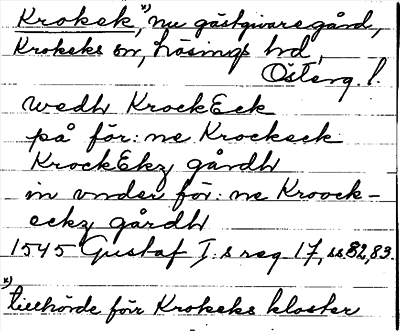 Krokek,ˣ⁾ nu gästgivaregård,
Krokeks sn, Lösings hd,
Österg. l.
wedh KrockEck
på för:ne Krockeek
KrockEkz gårdh
in vnder för:ne Kroock-
eckz gårdh
1545 Gustaf I:s reg. 17, ss 82, 83.
ˣ⁾ tillhörde förr Krokeks kloster